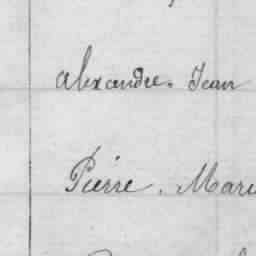 Alexandre. Jean
Pierre. Mari